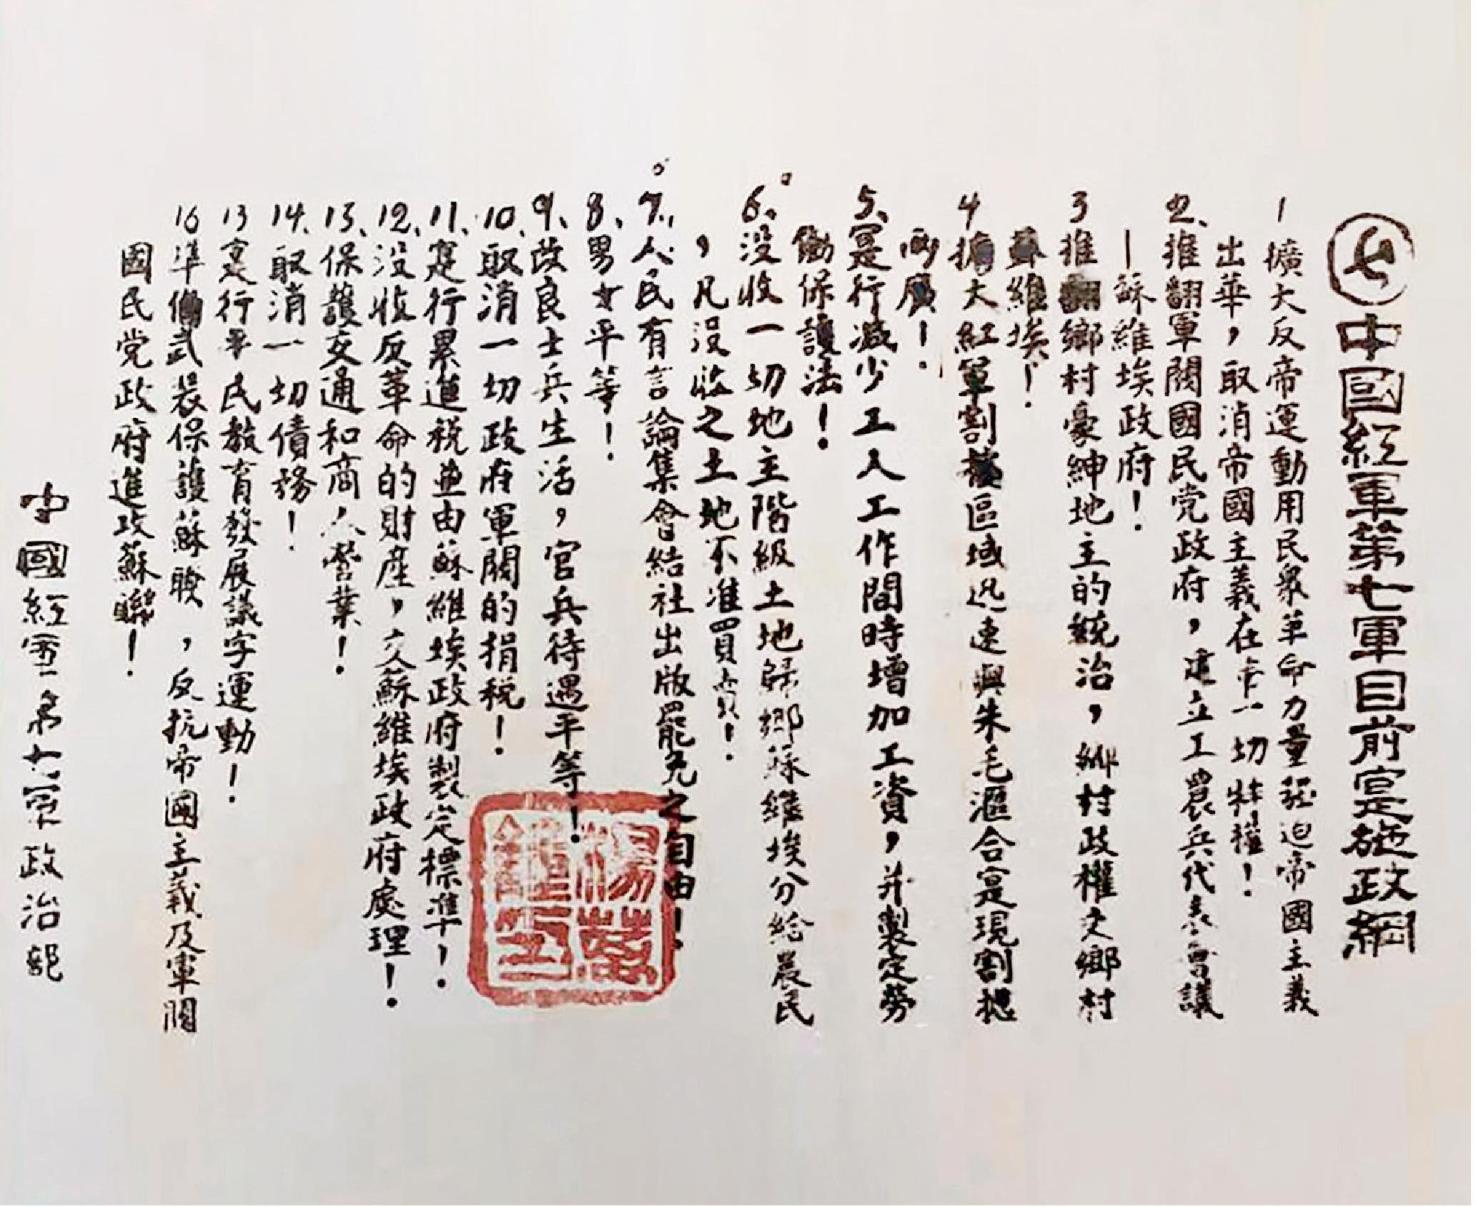 七 中國紅軍第七軍目前寔施政綱
1 擴大反帝運動用民衆革命力量 迫帝國主義
出華，取消帝國主義在 一切特權！
2、推翻軍閥國民党政府，建立工農兵代表會議
—蘇維埃政府！
3 推翻鄉村豪紳地主的統治，鄉村政權交鄉村
蘇維埃！
4 擴大紅軍割據區域迅速與朱毛滙合寔現割據
兩廣！
5、寔行减少工人工作間時增加工資，并製定勞
働保護法！
6、没收一切地主階級土地歸鄉蘇維埃分給農民
，凡没收之土地不准買賣！
7、人民有言論集會結社出版罷免之自由！
8、男女平等！
9、改良士兵生活，官兵待遇平等！
10、取消一切政府軍閥的捐税！
11、寔行累進税並由蘇維埃政府製定標準！
12、没收反革命的財産，交蘇維埃政府處理！
13、保護交通和商人營業！
14、取消一切債務！
13寔行平民教育發展議字運動！
16準備武裝保護蘇聯，反抗帝國主義及軍閥
國民党政府進攻蘇聯！
中國紅軍第七軍政治部